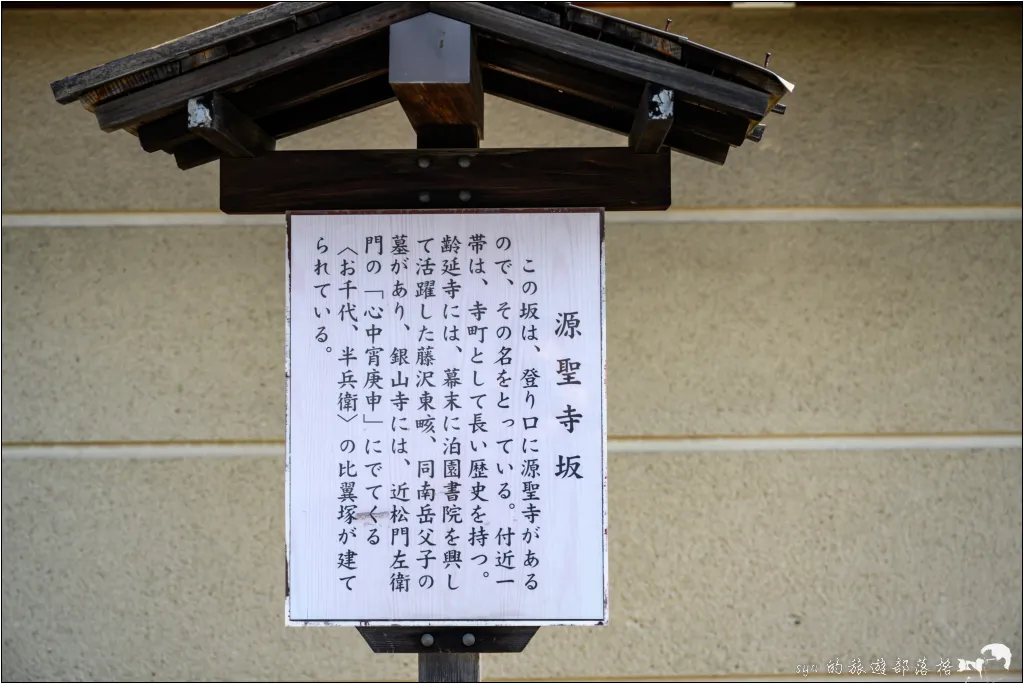 源聖寺坂
この坂は、登り口に源聖寺がある
ので、その名をとっている。付近一
帯は、寺町として長い歴史を持つ。
齢延寺には、幕末に泊園書院を興し
て活躍した藤沢東畡、同南岳父子の
墓があり、銀山寺には、近松門左衛
門の「心中宵庚申」にでてくる
〈お千代、半兵衛〉の比翼塚が建て
られている。
syn的旅遊部落格